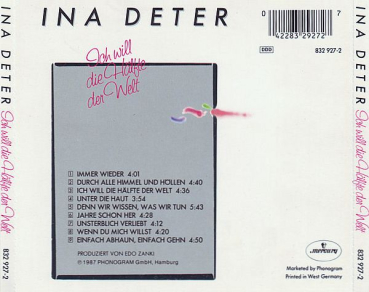 INA DETER
0 7
42283 29272
DDD
832 927-2
Ich will
die Hälfte
der Welt
1 IMMER WIEDER 4:01
2 DURCH ALLE HIMMEL UND HÖLLEN 4:40
3 ICH WILL DIE HÄLFTE DER WELT 4:36
4 UNTER DIE HAUT 3:54
5 DENN WIR WISSEN, WAS WIR TUN 5:43
6 JAHRE SCHON HER 4:28
7 UNSTERBLICH VERLIEBT 4:12
8 WENN DU MICH WILLST 4:20
9 EINFACH ABHAUN, EINFACH GEHN 4:50
PRODUZIERT VON EDO ZANKI
℗ 1987 PHONOGRAM GmbH, Hamburg
mercury
Marketed by Phonogram
Printed in West Germany
INA DETER Ich will die Hälfte der Welt 832 927-2
INA DETER Ich will die Hälfte der Welt 832 927-2